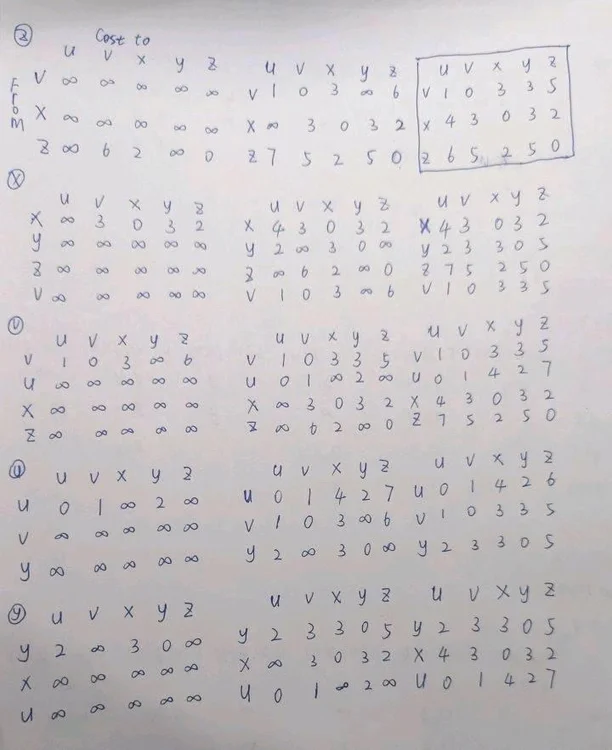 Ⓩ Cost to
u v x y z u v x y z u v x y z
From
v ∞ ∞ ∞ ∞ ∞ v 1 0 3 ∞ 6 v 1 0 3 3 5
x ∞ ∞ ∞ ∞ ∞ x ∞ 3 0 3 2 x 4 3 0 3 2
z ∞ 6 2 ∞ 0 z 7 5 2 5 0 z 6 5 2 5 0
Ⓧ
u v x y z u v x y z u v x y z
x ∞ 3 0 3 2 x 4 3 0 3 2 x 4 3 0 3 2
y ∞ ∞ ∞ ∞ ∞ y 2 ∞ 3 0 ∞ y 2 3 3 0 5
z ∞ ∞ ∞ ∞ ∞ z ∞ 6 2 ∞ 0 z 7 5 2 5 0
v ∞ ∞ ∞ ∞ ∞ v 1 0 3 ∞ 6 v 1 0 3 3 5
Ⓥ
u v x y z u v x y z u v x y z
v 1 0 3 ∞ 6 v 1 0 3 3 5 v 1 0 3 3 5
u ∞ ∞ ∞ ∞ ∞ u 0 1 ∞ 2 ∞ u 0 1 4 2 7
x ∞ ∞ ∞ ∞ ∞ x ∞ 3 0 3 2 x 4 3 0 3 2
z ∞ ∞ ∞ ∞ ∞ z ∞ 6 2 ∞ 0 z 7 5 2 5 0
Ⓤ
u v x y z u v x y z u v x y z
u 0 1 ∞ 2 ∞ u 0 1 4 2 7 u 0 1 4 2 6
v ∞ ∞ ∞ ∞ ∞ v 1 0 3 ∞ 6 v 1 0 3 3 5
y ∞ ∞ ∞ ∞ ∞ y 2 ∞ 3 0 ∞ y 2 3 3 0 5
Ⓨ
u v x y z u v x y z u v x y z
y 2 ∞ 3 0 ∞ y 2 3 3 0 5 y 2 3 3 0 5
x ∞ ∞ ∞ ∞ ∞ x ∞ 3 0 3 2 x 4 3 0 3 2
u ∞ ∞ ∞ ∞ ∞ u 0 1 ∞ 2 ∞ u 0 1 4 2 7